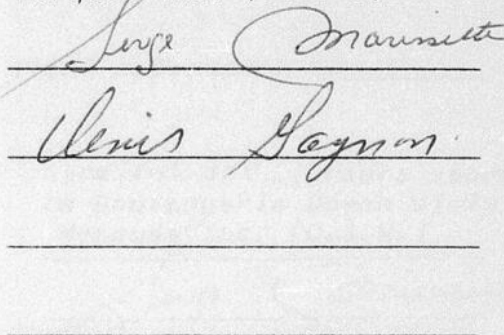 Serge Marissette
Denis Gagnon